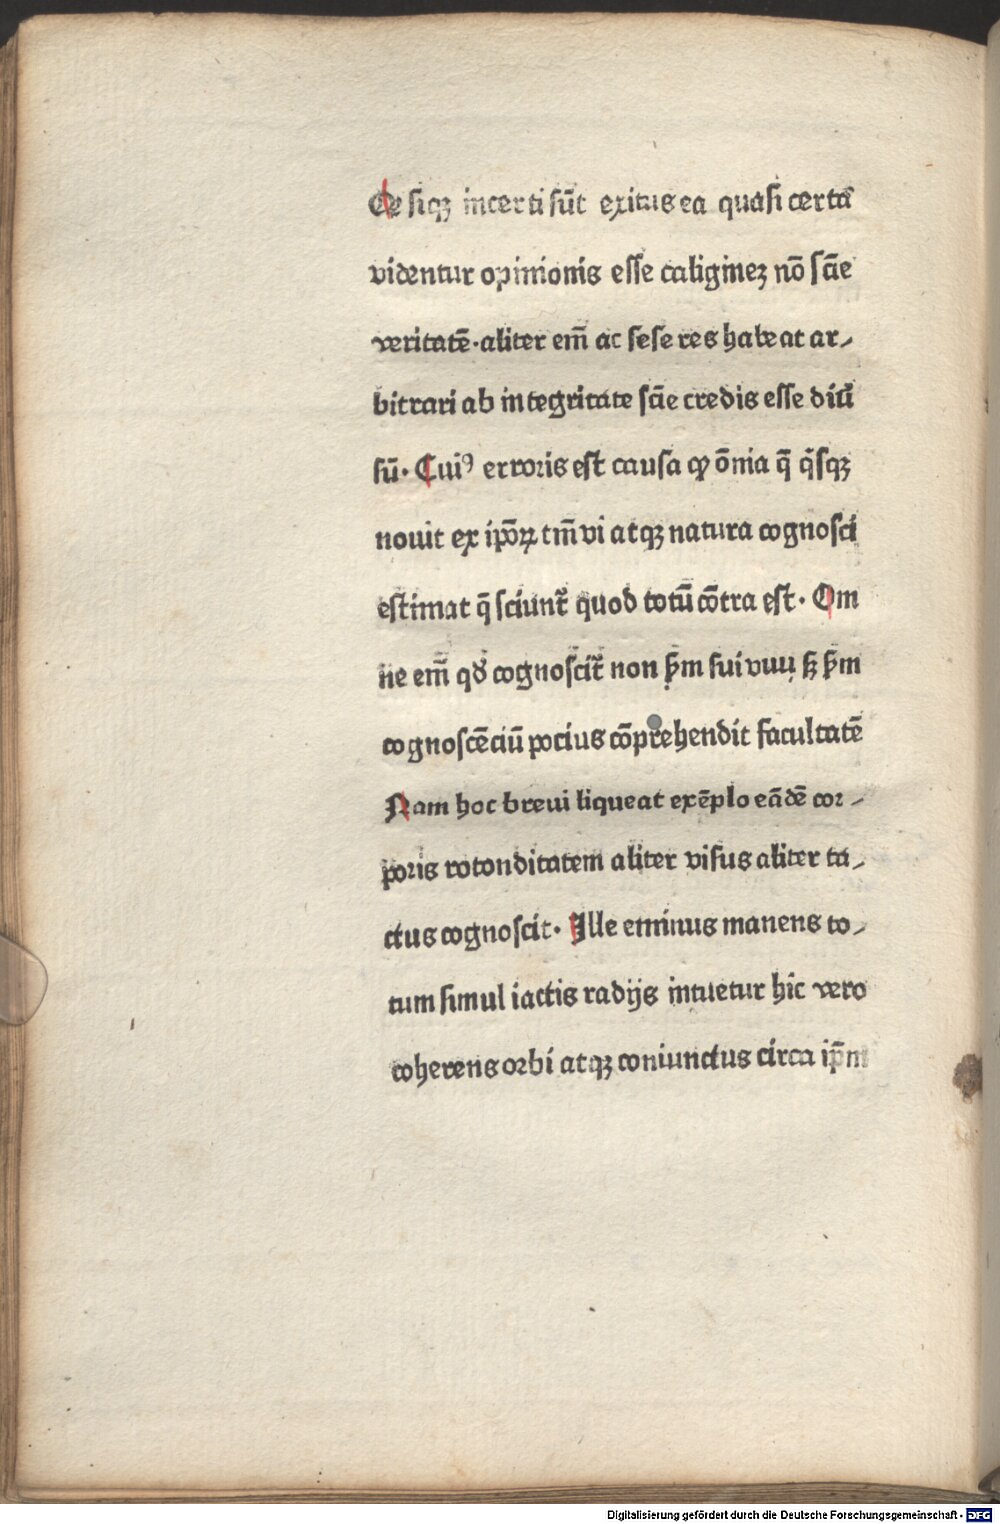 Qe siqꝫ incerti sūt exitus ea quasi certa
videntur opinionis esse caligineꝫ nō scīe
veritatē·aliter em̄ ac sese res habeat ar⸗
bitrari ab integritate scīe credis esse diu̾
sū· Cuiꝰ erroris est causa ꝙ ōnia q̄ q̄sqꝫ
nouit ex ip̄oꝝ tm̄ vi atqꝫ natura cognosci
estimat q̄ sciunt᷑ quod totū cōtra est· Om
ne em̄ qd̓ cognoscit᷑ non ẜm sui vim sꝫ ẜm
cognoscēciū pocius cōprehendit facultatē
Nam hoc breui liqueat exēplo eādē cor⸗
poris rotonditatem aliter visus aliter ta⸗
ctus cognoscit· Ille eminus manens to⸗
tum simul iactis radijs intuetur hic vero
coherens orbi atqꝫ coniunctus circa ip̄m
Digitalisierung gefördert durch die Deutsche Forschungsgemeinschaft - DFG